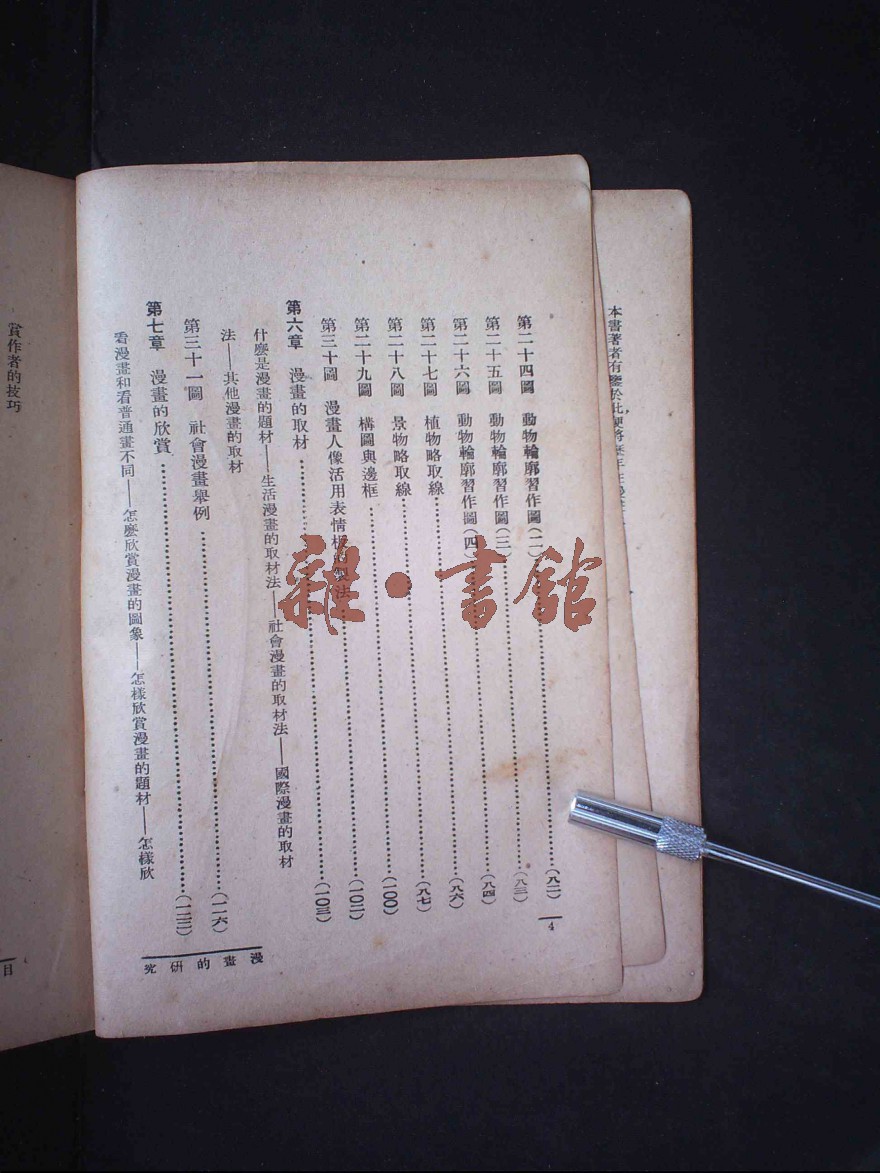 本書著者有鑒於此便將歷年在漫畫
第二十四圖 動物輪廓習作圖(二)……(八二)
第二十五圖 動物輪廓習作圖(三)……(八三)
第二十六圖 動物輪廓習作圖(四)……(八四)
第二十七圖 植物略取線……(八六)
第二十八圖 景物略取線……(八七)
第二十九圖 構圖與邊框……(一〇〇)
第三十圖 漫畫人像活用表情板的製法……(一〇二)
第六章 漫畫的取材……(一〇三)
什麼是漫畫的題材——生活漫畫的取材法——社會漫畫的取材法——國際漫畫的取材
法——其他漫畫的取材
第三十一圖 社會漫畫舉例……(一一六)
第七章 漫畫的欣賞……(一二三)
看漫畫和看普通畫不同——怎麼欣賞漫畫的圖象——怎樣欣賞漫畫的題材——怎樣欣
4
漫畫的研究
賞作者的技巧
目
雜·書館